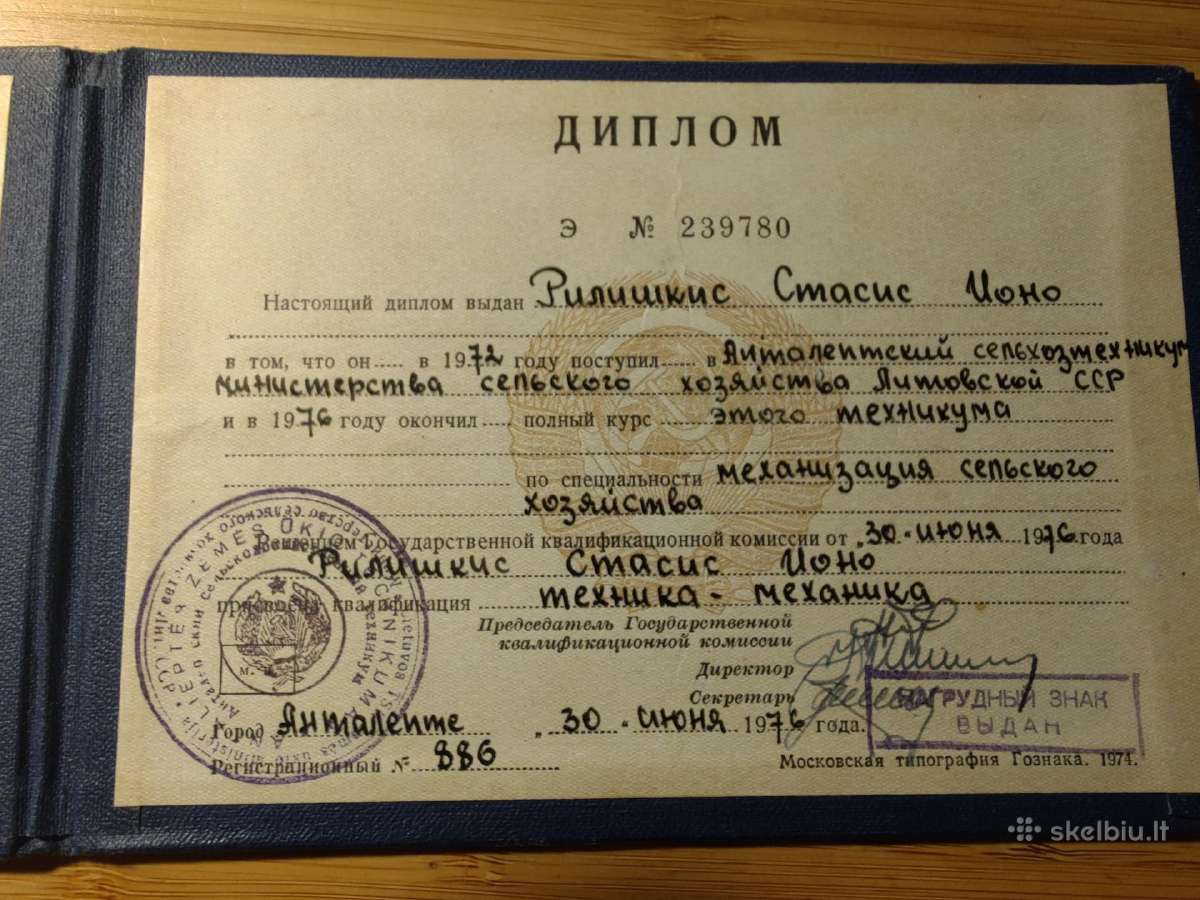 ДИПЛОМ
Э № 239780
Настоящий диплом выдан Рилишкис Стасис Ионо
в том, что он в 1972 году поступил в Анталептский сельхозтехникум
министерства сельского хозяйства Литовской ССР
и в 1976 году окончил полный курс этого техникума
по специальности механизация сельского
хозяйства
Решением Государственной квалификационной комиссии от „30 - июня 1976 года
Рилишкис Стасис Ионо
присвоена квалификация техника - механика
Председатель Государственной
квалификационной комиссии
Директор
Секретарь
НАГРУДНЫЙ ЗНАК
ВЫДАН
Город Анталепте „30 - июня 1976 года.
Регистрационный № 886
Московская типография Гознака. 1974.
м.
skelbiu.lt